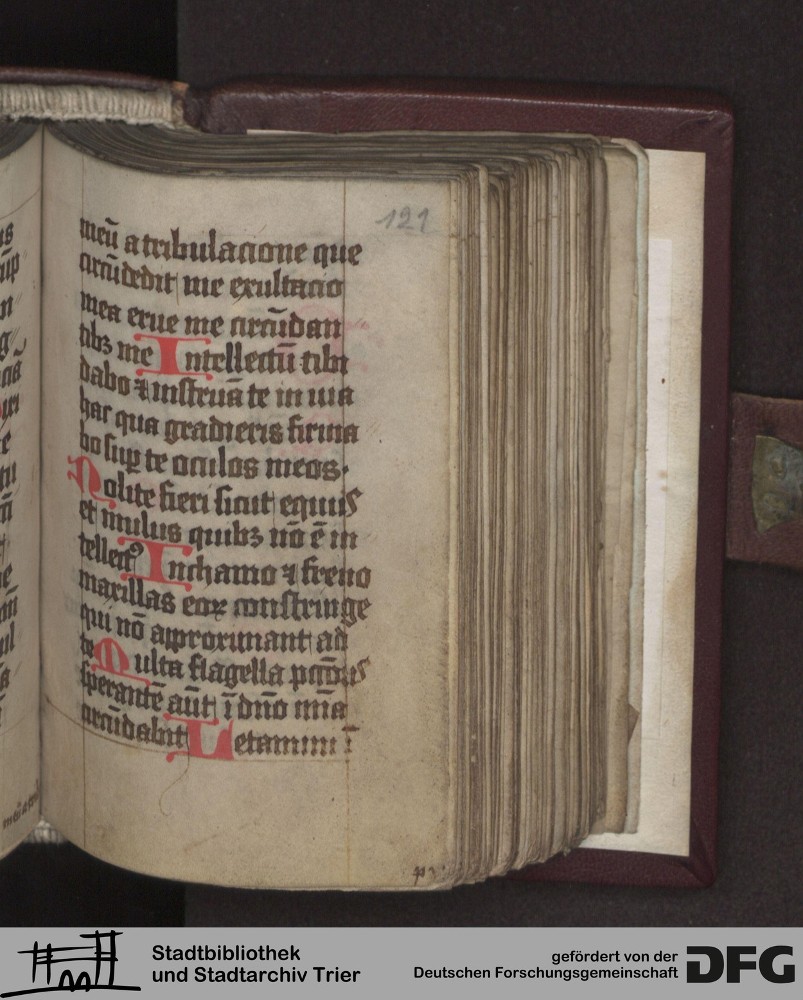 121
meū a tribulacione que
circūdedit me exultacio
mea erue me circūdan
tibꝫ me Intellectū tibi
dabo ⁊ instruā te in uia
hac qua gradieris firma
bo suꝑ te oculos meos·
Nolite fieri sicut equus
et mulus quibꝫ nō ē in
tellectꝰ In chamo ⁊ freno
maxillas eoꝝ constringe
qui nō approximant ad
te Multa flagella
sperantē aūt ī dn̄o mīa
circūdabit Letamini ī
Stadtbibliothek
und Stadtarchiv Trier
gefördert von der
Deutschen Forschungsgemeinschaft
DFG